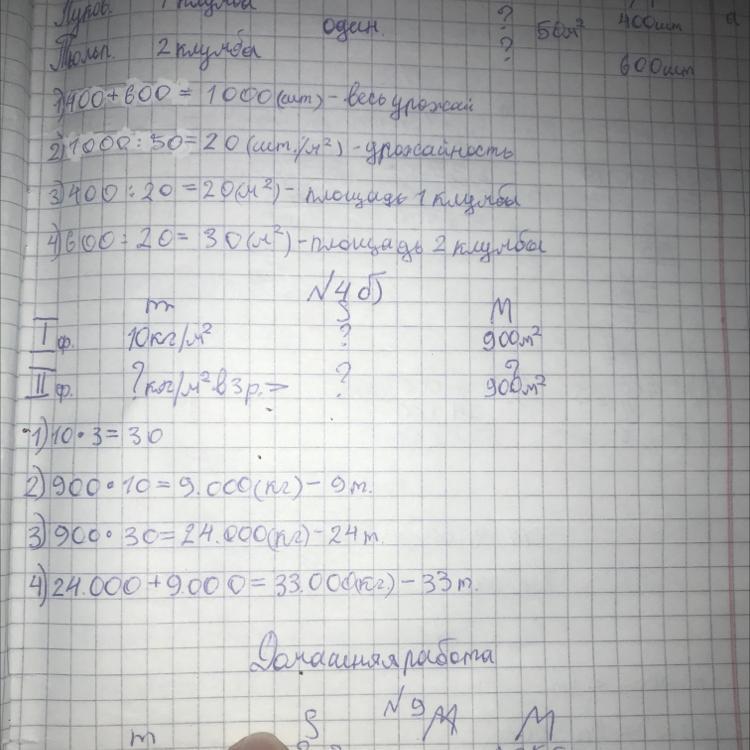 Луков. 1 клумба один ? 50м² 400шт
Тюльп. 2 клумба ? 600шт
1)400+600 = 1000(шт) - весь урожай
2)1000:50=20(шт./м²) - урожайность
3)400:20=20(м²) - площадь 1 клумбы
4)600:20=30(м²) - площадь 2 клумбы
№4б)
m S М
I ф. 10кг/м² ? 900м²
II ф. ?кг/м² в 3 р.> ? 900м²
1)10·3=30
2)900·10=9.000(кг) - 9т.
3)900·30=24.000(кг) - 24т.
4)24.000+9.000=33.000(кг) - 33т.
Домашняя работа
№9
m S М М